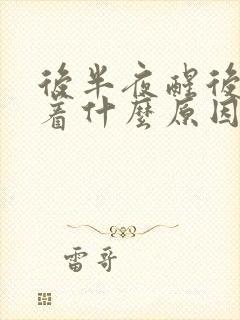 後半夜醒後
着什麼原因
雷哥